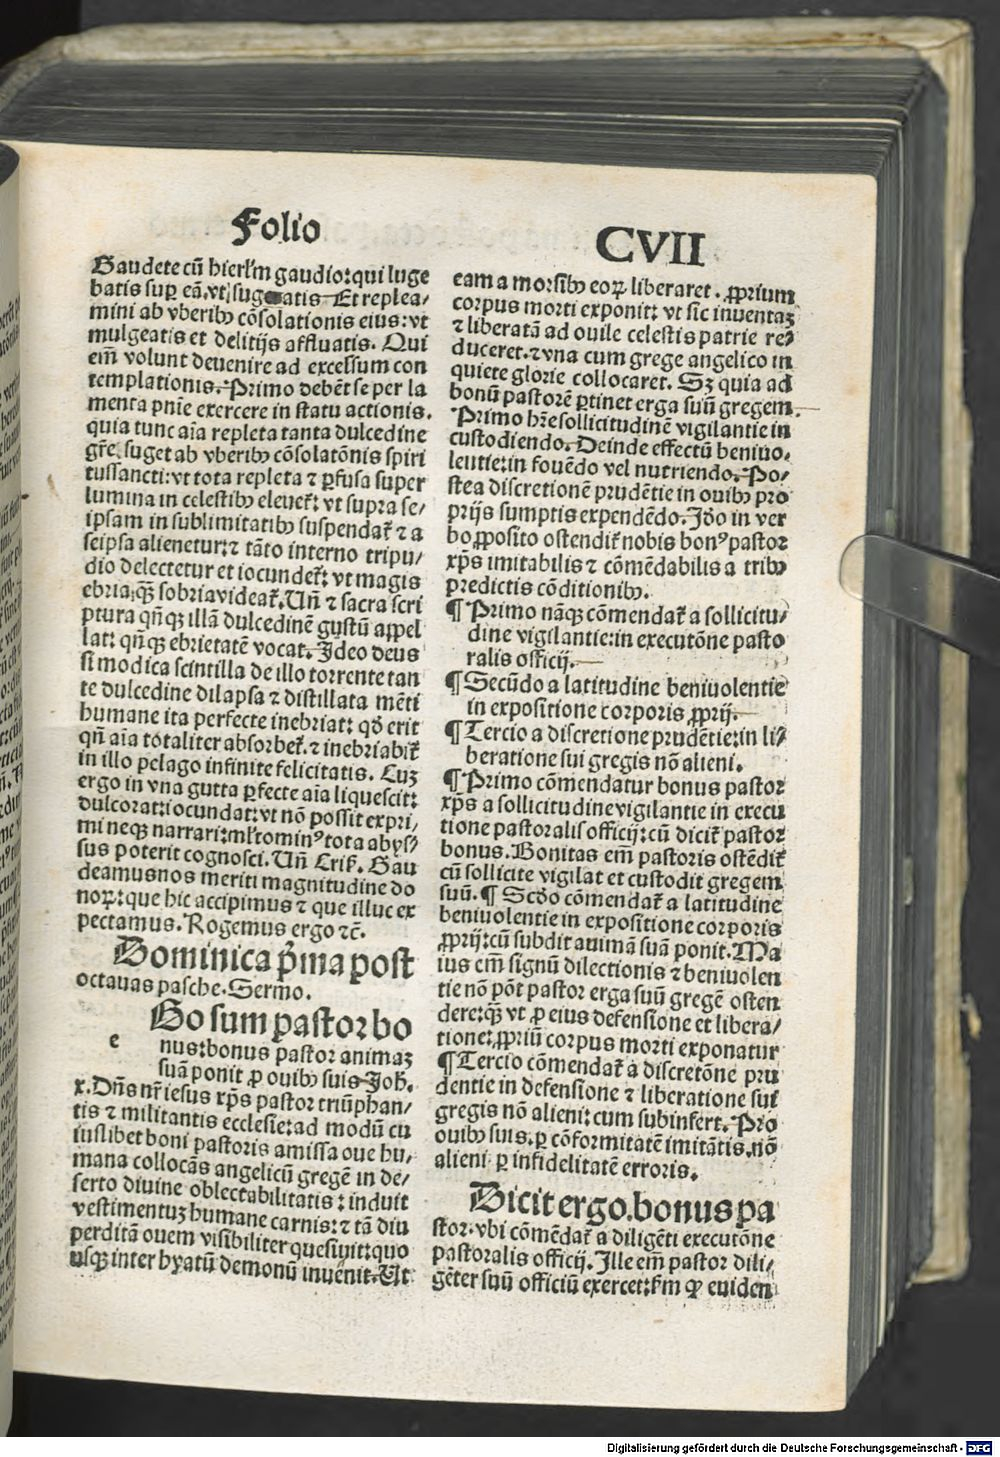 Folio
CVII
Gaudete cū hierl'm gaudio: qui luge
batis sup̲ eā. vt sugeatis Et replea⸗
mini ab vberibꝰ cōsolationis eius: vt
mulgeatis et delitijs affluatis. Qui
em̄ volunt deuenire ad excelsum con
templationis. Primo debēt se per la
menta pn̄ie exercere in statu actionis.
quia tunc aīa repleta tanta dulcedine
gr̄e. suget ab vberibꝰ cōsolatōnis spiri
tussancti: vt tota repleta ⁊ ꝑfusa super
lumina in celestibꝰ eleuet̄: vt supra se⸗
ipsam in sublimitatibꝰ suspendat̄ ⁊ a
seipsa alienetur: ⁊ tāto interno tripu⸗
dio delectetur et iocundet̄: vt magis
ebria qꝫ sobria videat̄. Un̄ ⁊ sacra scri
ptura qn̄qꝫ illā dulcedinē gustū appel
lat: qn̄qꝫ ebrietatē vocat. Ideo deus
si modica scintilla de illo torrente tan
te dulcedine dilapsa ⁊ distillata mēti
humane ita perfecte inebriat: qd̄ erit
qn̄ aīa totaliter absorbet̄. ⁊ inebriabit̄
in illo pelago infinite felicitatis. Cuꝫ
ergo in vna gutta ꝑfecte aīa liquescit:
dulcorat: iocundat: vt nō possit expri⸗
mi neqꝫ narrari: ml'tominꝰ tota abys⸗
sus poterit cognosci. Un̄ Cris̄. Gau
deamus nos meriti magnitudine do
noꝝ: que hic accipimus ⁊ que illuc ex
pectamus. Rogemus ergo ⁊c̄.
Dominica p̄ma post
octauas pasche. Sermo.
Go sum pastor bo
e
nus: bonus pastor animaꝫ
suā ponit ꝓ ouibꝰ suis Joh̄.
x. Dn̄s nr̄ iesus xp̄s pastor triūphan⸗
tis ⁊ militantis ecclesie: ad modū cu
iuslibet boni pastoris amissa oue hu⸗
mana collocās angelicū gregē in de⸗
serto diuine oblectabilitatis: induit
vestimentuꝫ humane carnis: ⁊ tā diu
perditā ouem visibiliter quesiuit: quo
usqꝫ inter hyatū demonū inuenit. Ut
eam a morsibꝰ eoꝝ liberaret. ꝓprium
corpus morti exponit: vt sic inuentaꝫ
⁊ liberatā ad ouile celestis patrie re⸗
duceret. ⁊ vna cum grege angelico in
quiete glorie collocaret. Sꝫ quia ad
bonū pastorē ꝑtinet erga suū gregem.
Primo hr̄e sollicitudinē vigilantie in
custodiendo. Deinde effectū beniuo⸗
lentie: in fouēdo vel nutriendo. Po⸗
stea discretionē prudētie in ouibꝰ pro
prijs sumptis expendēdo. Jdō in ver
bo ꝓposito ostendit̄ nobis bonꝰ pastor
xp̄s imitabilis ⁊ cōmēdabilis a tribꝰ
predictis cōditionibꝰ.
¶ Primo nāqꝫ cōmendat̄ a sollicitu⸗
dine vigilantie: in executōne pasto
ralis officij.
¶ Secūdo a latitudine beniuolentie
in expositione corporis ꝓprij.
¶ Tercio a discretione prudētie: in li⸗
beratione sui gregis nō alieni.
¶ Primo cōmendatur bonus pastor
xp̄s a sollicitudine vigilantie in execu
tione pastoralis officij: cū dicit̄ pastor
bonus. Bonitas em̄ pastoris ostēdit̄
cū sollicite vigilat et custodit gregem
suū. ¶ Scd̄o cōmendat̄ a latitudine
beniuolentie in expositione corporis
ꝓprij: cū subdit animā suā ponit. Ma
ius em̄ signū dilectionis ⁊ beniuolen
tie nō pōt pastor erga suū gregē osten
dere: qꝫ vt ꝓ eius defensione et libera⸗
tione: ꝓpriū corpus morti exponatur
¶ Tercio cōmendat̄ a discretōne pru
dentie in defensione ⁊ liberatione sui
gregis nō alieni: cum subinfert. Pro
ouibꝰ suis. ꝑ cōformitatē imitātis. nō
alieni ꝑ infidelitatē erroris.
Dicit ergo. bonus pa
stor. vbi cōmēdat̄ a diligēti executōne
pastoralis officij. Ille em̄ pastor dili⸗
gēter suū officiū exercet: s̄m ꝙ euiden
Digitalisierung gefördert durch die Deutsche Forschungsgemeinschaft - DFG